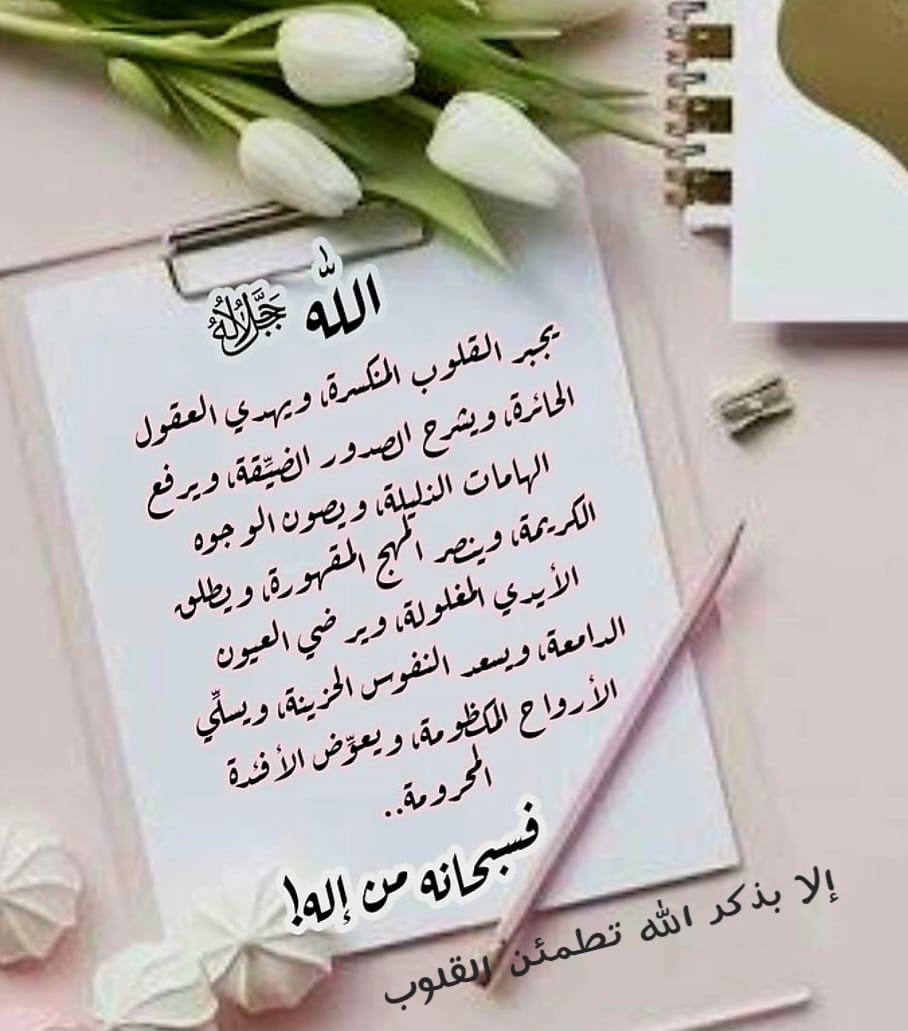 الله جَلَّ جَلَالُهُ
يجبر القلوب المنكسرة، ويهدي العقول
الحائرة، ويشرح الصدور الضيِّقة، ويرفع
الهامات الذليلة، ويصون الوجوه
الكريمة، وينصر المهج المقهورة، ويطلق
الأيدي المغلولة، ويرضي العيون
الدامعة، ويسعد النفوس الحزينة، ويسلِّي
الأرواح المكظومة، ويعوِّض الأفئدة
المحرومة..
فسبحانه من إله!
إلا بذكر الله تطمئن القلوب